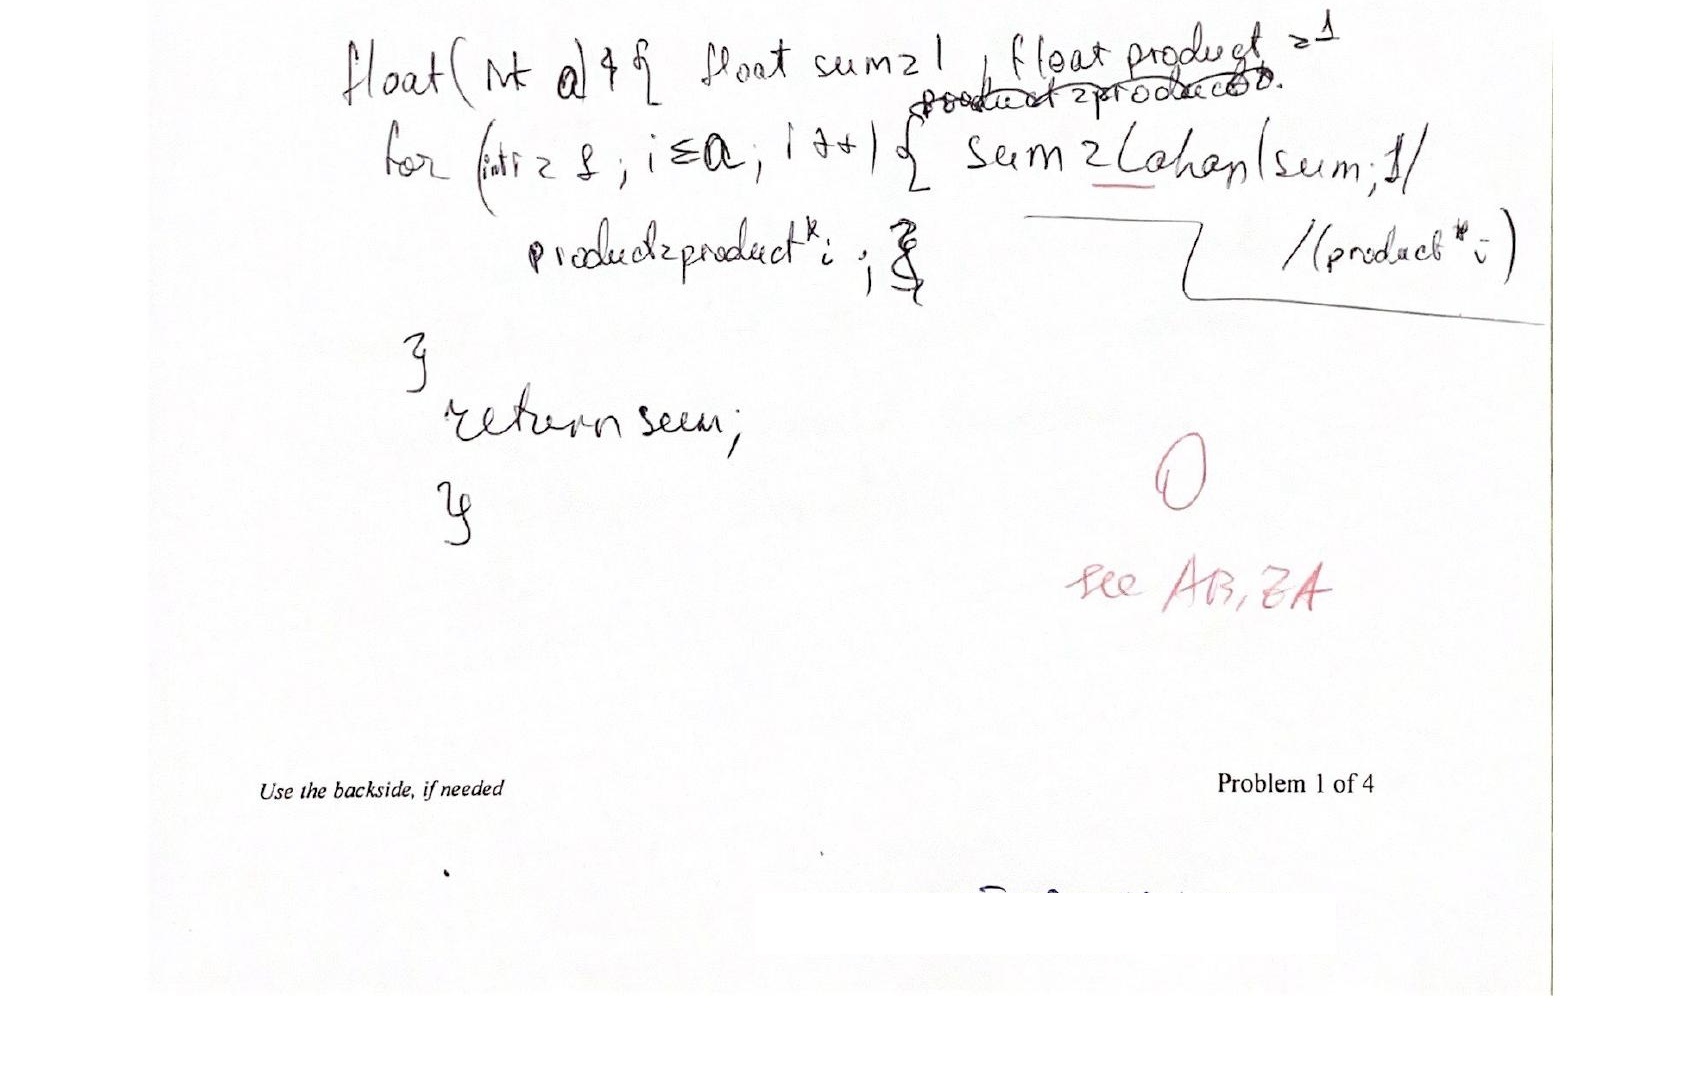 float(int a){ float sum=1, float product=1
for (int i=1; i≤a; i++){ sum=Cahan(sum;1/
/(product*i)
product=product*i;
}
return sum;
}
0
see AB, ZA
Use the backside, if needed
Problem 1 of 4